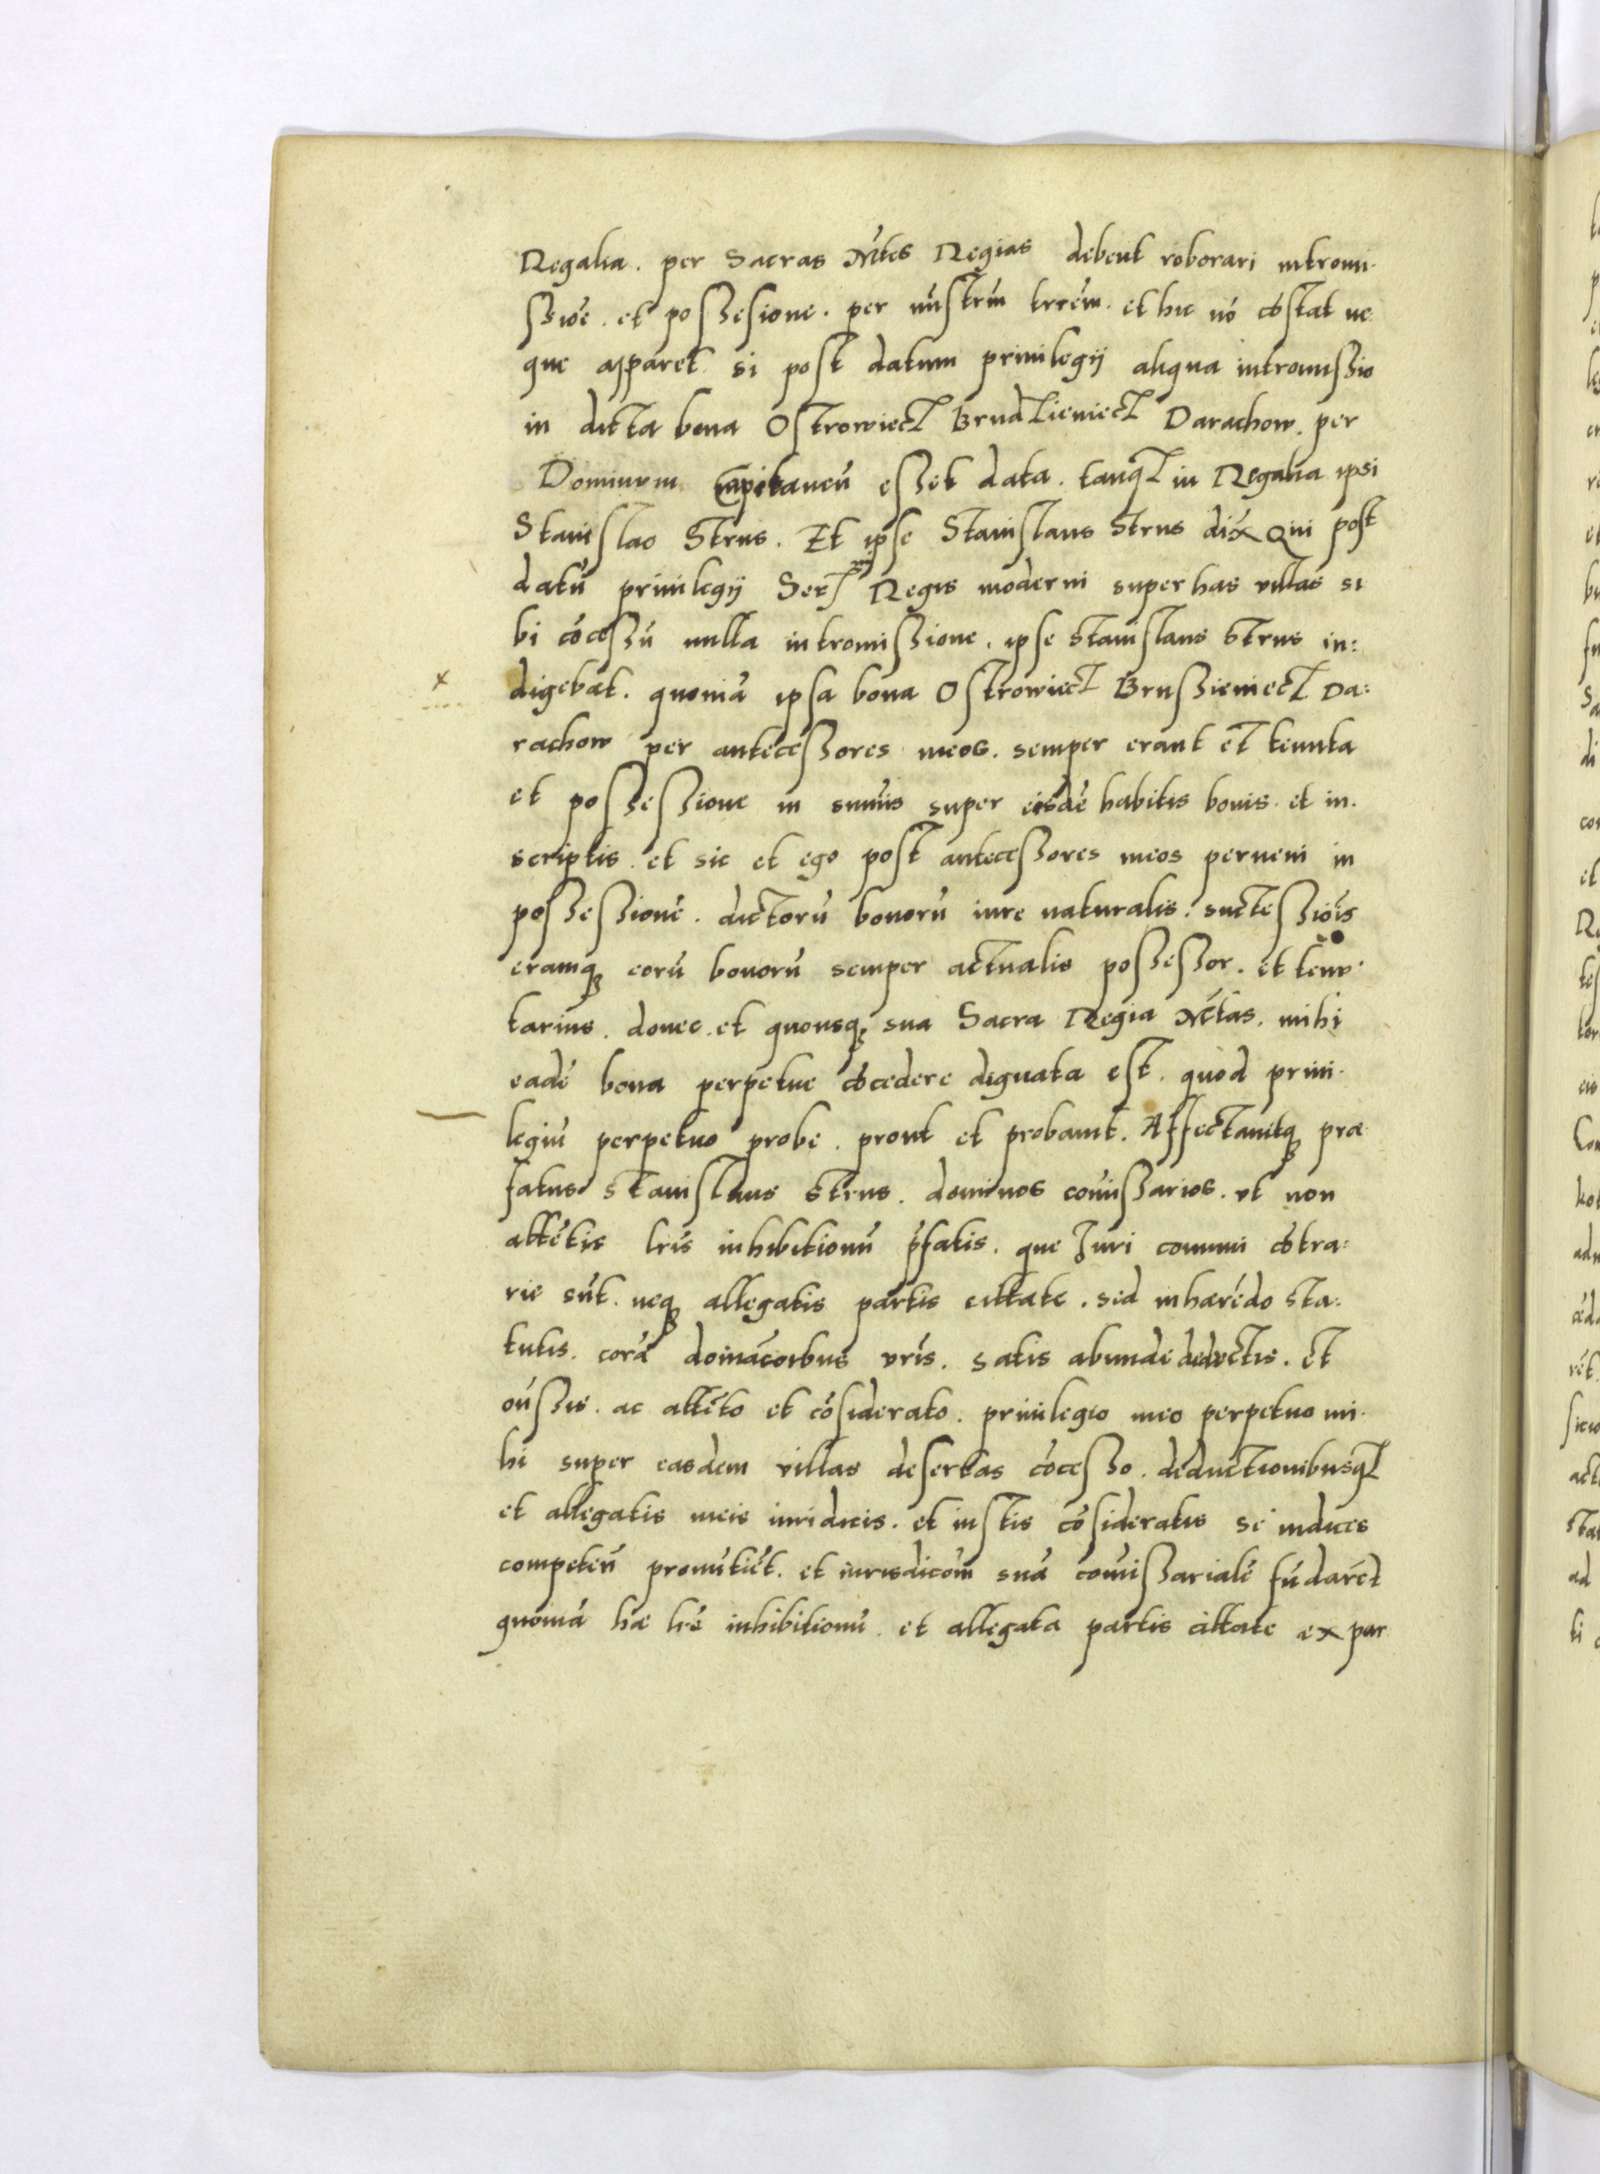 Regalia. per Sacras Mtes Regias debent roborari intromi-
ssioe. et possesione. per mistrm trrem. et hic no costat ne
que apparet si post datum priuilegij aliqua intromissio
in dicta bona Ostrowiecz Brudzieniecz Darachow. per
Dominum Capitaneu esset data. tanqz in Regalia ipsi
Stanislao Strus. Et ipse Stanislaus Strus dix Qui post
datu priuilegij Sermi Regis moderni super has villas si
bi cocessu nulla intromissione. ipse Stanislaus Strus in:
digebat. quonia ipsa bona Ostrowiecz Brussieniecz Da:
rachow per antecessores meos. semper erant et tenuta
et possessione in sumis super eisde habitis bonis et in.
scriptis. et sic et ego post antecessores meos perueni in
possessione. dictoru bonoru iure naturalis. suctessiois
eramq eoru bonoru semper actualis possessor. et tenu-
tarius. donec. et quousq sua Sacra Regia Mtas. mihi
eade bona perpetue cocedere dignata est. quod priui-
legiu perpetuo probe. prout et probauit. Affectauitq præ
fatus Stanislaus Strus. dominos comissarios. vt non
attetis lris inhibitionu pfatis. que Juri comuni cotra:
rie sut. neq allegatis partis cittate. sed inhæredo sta:
tutis. cora domacoibus vris. satis abunde deductis. et
oussis. ac atteto et cosiderato. priuilegio meo perpetuo mi-
hi super easdem villas desertas cocesso. deductionibusqz
et allegatis meis iuridicis. et iustis cosideratis se iudices
competen pronutiet. et iurisdicom sua comissariale fudaret
quonia hæ lre inhibitionu. et allegata partis cittate ex par